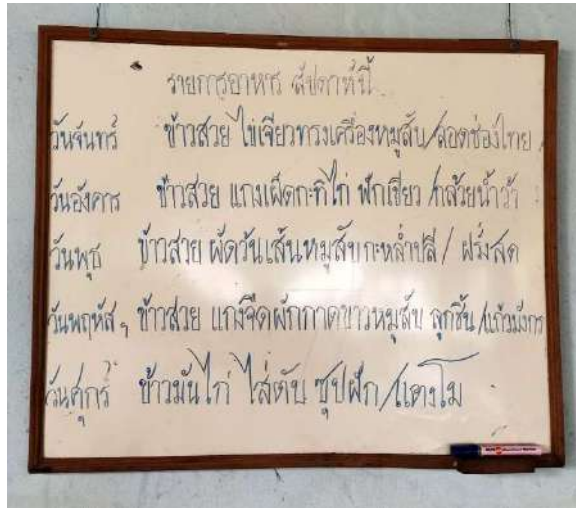 รายการอาหาร สัปดาห์นี้
วันจันทร์ ข้าวสวย ไข่เจียวทรงเครื่องหมูสับ/ลอดช่องไทย
วันอังคาร ข้าวสวย แกงเผ็ดกะทิไก่ ฟักเขียว/กล้วยน้ำว้า
วันพุธ ข้าวสวย ผัดวุ้นเส้นหมูสับกะหล่ำปลี/ ฝรั่งสด
วันพฤหัสฯ ข้าวสวย แกงจืดผักกาดขาวหมูสับ ลูกชิ้น/แก้วมังกร
วันศุกร์ ข้าวมันไก่ ใส่ตับ ซุปฟัก/แตงโม